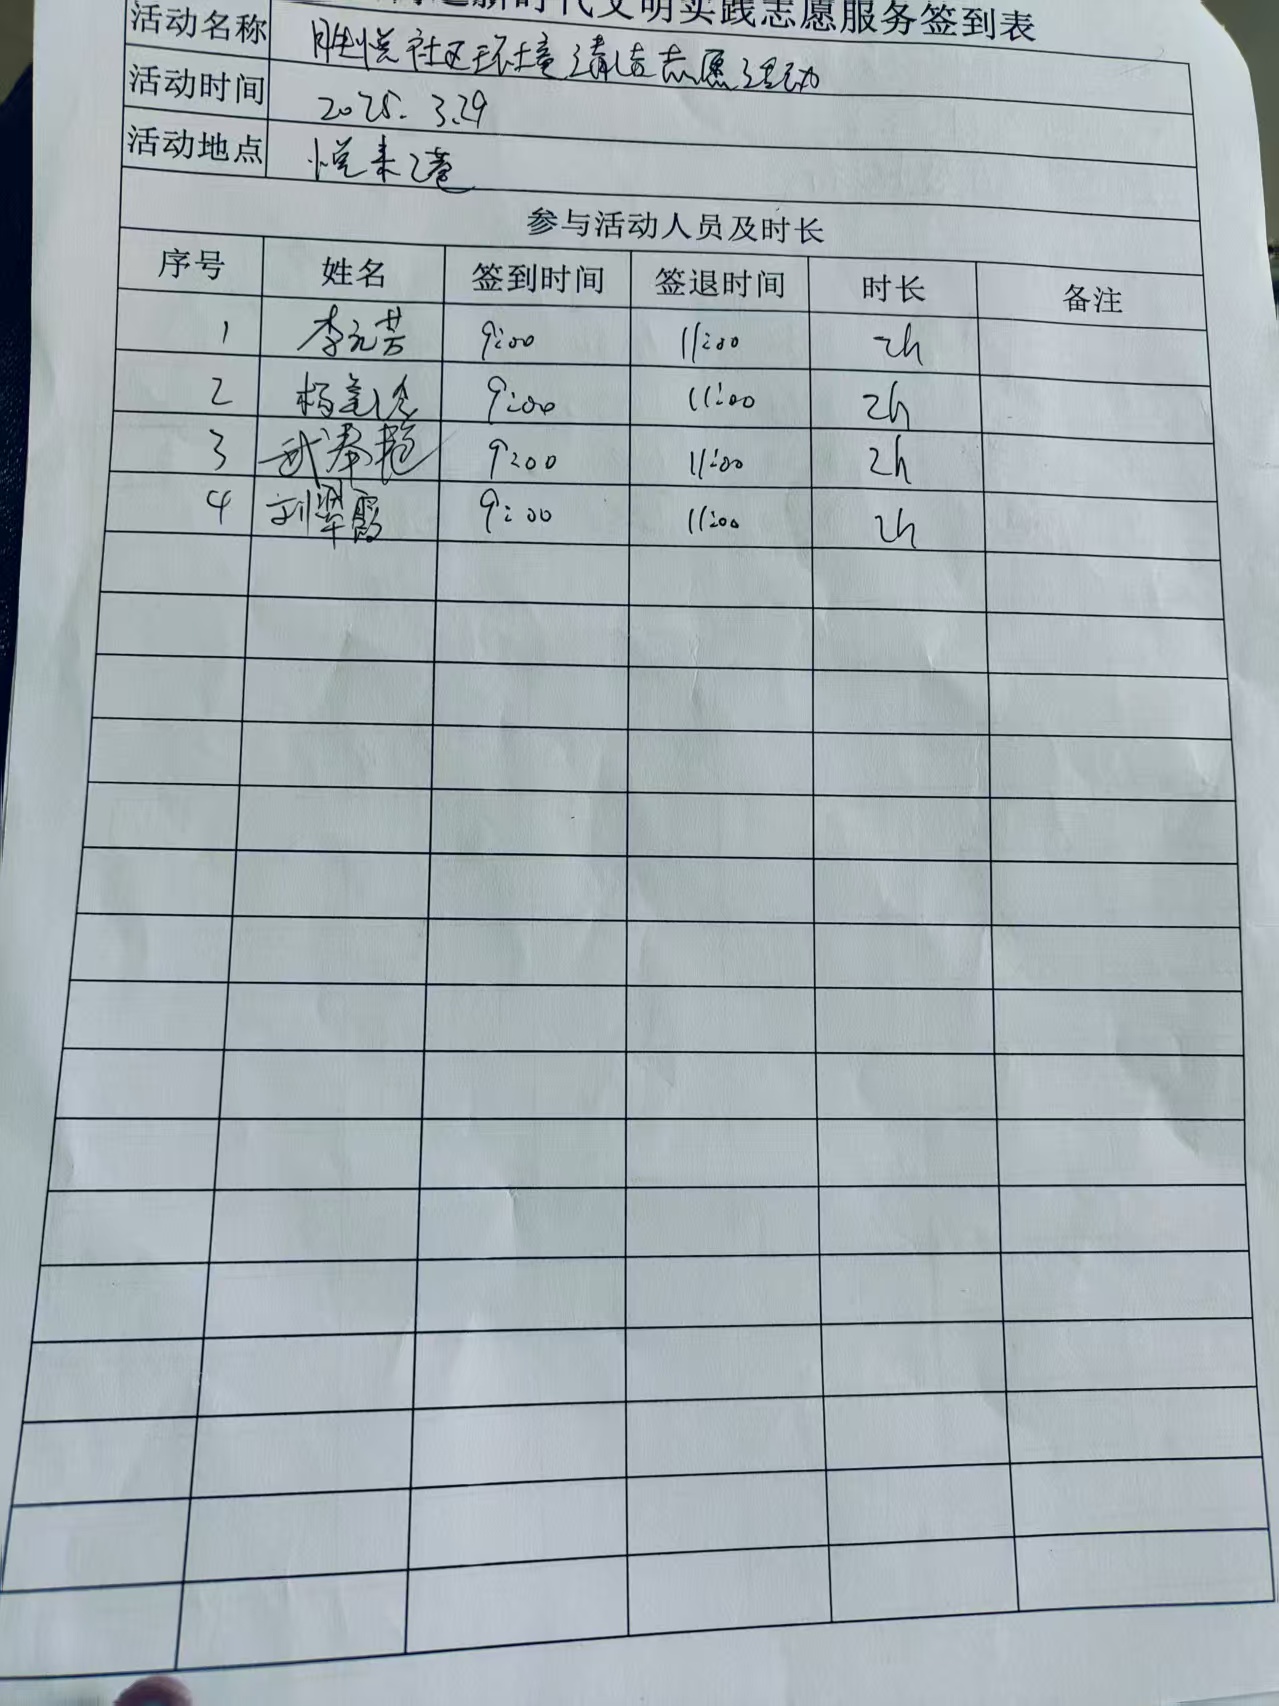 新时代文明实践志愿服务签到表
活动名称 胜悦社区环境清洁志愿活动
活动时间 2025.3.29
活动地点 悦来港
参与活动人员及时长
序号 姓名 签到时间 签退时间 时长 备注
1 李元芳 9:00 11:00 2h
2 杨 9:00 11:00 2h
3 武奉艳 9:00 11:00 2h
4 刘翠霞 9:00 11:00 2h